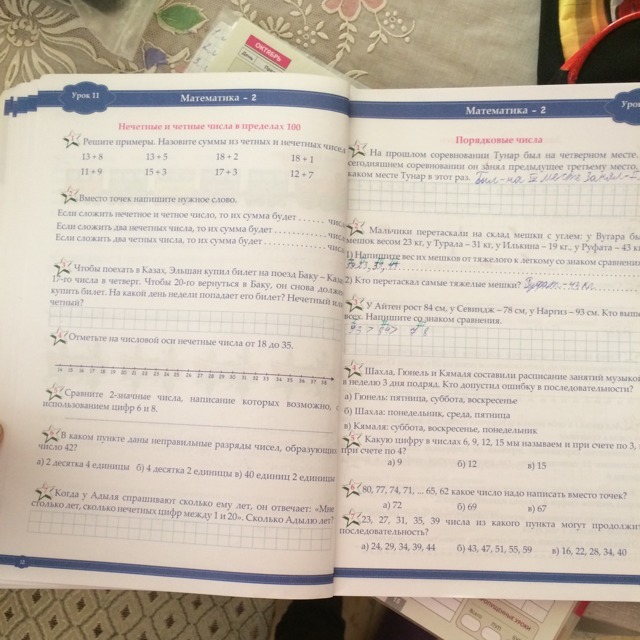 ОКТЯБРЬ
Урок 11
Математика – 2
Нечетные и четные числа в пределах 100
Решите примеры. Назовите суммы из четных и нечетных чисел
13 + 8 13 + 5 18 + 2 18 + 1
11 + 9 15 + 3 17 + 3 12 + 7
Вместо точек напишите нужное слово.
Если сложить нечетное и четное число, то их сумма будет ...... числ
Если сложить два нечетных числа, то их сумма будет ......
Если сложить два четных числа, то их сумма будет ......
Чтобы поехать в Казах, Эльшан купил билет на поезд Баку – Каз
17-го числа в четверг. Чтобы 20-го вернуться в Баку, он снова должен
купить билет. На какой день недели попадает его билет? Нечетный или
четный?
Отметьте на числовой оси нечетные числа от 18 до 35.
Сравните 2-значные числа, написание которых возможно, с
использованием цифр 6 и 8.
В каком пункте даны неправильные разряды чисел, образующих
число 42?
а) 2 десятка 4 единицы б) 4 десятка 2 единицы в) 40 единиц 2 единицы
Когда у Адыля спрашивают сколько ему лет, он отвечает: «Мне
столько лет, сколько нечетных цифр между 1 и 20». Сколько Адылю лет?
12
Математика – 2
Уро
Порядковые числа
На прошлом соревновании Тунар был на четверном месте.
сегодняшнем соревновании он занял предыдущее третьему место.
каком месте Тунар в этот раз.
Мальчики перетаскали на склад мешки с углем: у Вугара бы
мешок весом 23 кг, у Турала – 31 кг, у Илькина – 19 кг., у Руфата – 43 кг
1) Напишите вес их мешков от тяжелого к легкому со знаком сравнения
2) Кто перетаскал самые тяжелые мешки?
У Айтен рост 84 см, у Севиндж – 78 см, у Наргиз – 93 см. Кто выше
всех. Напишите со знаком сравнения.
Шахла, Гюнель и Кямаля составили расписание занятий музыкой
в неделю 3 дня подряд. Кто допустил ошибку в последовательности?
а) Гюнель: пятница, суббота, воскресенье
б) Шахла: понедельник, среда, пятница
в) Кямаля: суббота, воскресенье, понедельник
Какую цифру в числах 6, 9, 12, 15 мы называем и при счете по 3,
при счете по 4?
а) 9 б) 12 в) 15
80, 77, 74, 71, ... 65, 62 какое число надо написать вместо точек?
а) 72 б) 69 в) 67
23, 27, 31, 35, 39 числа из какого пункта могут продолжить
последовательность?
а) 24, 29, 34, 39, 44 б) 43, 47, 51, 55, 59 в) 16, 22, 28, 34, 40